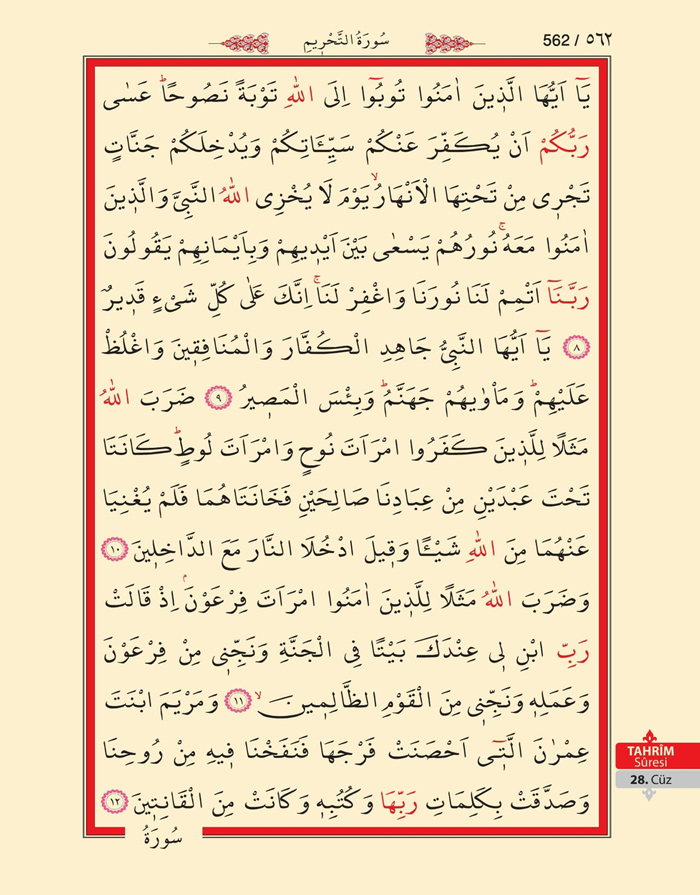 سُورَةُ التَّحْرِيمِ
562 / ٥٦٢
يَٓا اَيُّهَا الَّذ۪ينَ اٰمَنُوا تُوبُٓوا اِلَى اللّٰهِ تَوْبَةً نَصُوحًاۜ عَسٰى
رَبُّكُمْ اَنْ يُكَفِّرَ عَنْكُمْ سَيِّـَٔاتِكُمْ وَيُدْخِلَكُمْ جَنَّاتٍ
تَجْر۪ي مِنْ تَحْتِهَا الْاَنْهَارُۙ يَوْمَ لَا يُخْزِي اللّٰهُ النَّبِيَّ وَالَّذ۪ينَ
اٰمَنُوا مَعَهُۚ نُورُهُمْ يَسْعٰى بَيْنَ اَيْد۪يهِمْ وَبِاَيْمَانِهِمْ يَقُولُونَ
رَبَّـنَٓا اَتْمِمْ لَنَا نُورَنَا وَاغْفِرْ لَنَاۚ اِنَّكَ عَلٰى كُلِّ شَيْءٍ قَد۪يرٌ
٨ يَٓا اَيُّهَا النَّبِيُّ جَاهِدِ الْكُفَّارَ وَالْمُنَافِق۪ينَ وَاغْلُظْ
عَلَيْهِمْۜ وَمَأْوٰيهُمْ جَهَنَّمُۜ وَبِئْسَ الْمَص۪يرُ ٩ ضَرَبَ اللّٰهُ
مَثَلًا لِلَّذ۪ينَ كَفَرُوا امْرَاَتَ نُوحٍ وَامْرَاَتَ لُوطٍۜ كَانَتَا
تَحْتَ عَبْدَيْنِ مِنْ عِبَادِنَا صَالِحَيْنِ فَخَانَتَاهُمَا فَلَمْ يُغْنِيَا
عَنْهُمَا مِنَ اللّٰهِ شَيْـًٔا وَق۪يلَ ادْخُلَا النَّارَ مَعَ الدَّاخِل۪ينَ ١٠
وَضَرَبَ اللّٰهُ مَثَلًا لِلَّذ۪ينَ اٰمَنُوا امْرَاَتَ فِرْعَوْنَۢ اِذْ قَالَتْ
رَبِّ ابْنِ ل۪ي عِنْدَكَ بَيْتًا فِي الْجَنَّةِ وَنَجِّن۪ي مِنْ فِرْعَوْنَ
وَعَمَلِه۪ وَنَجِّن۪ي مِنَ الْقَوْمِ الظَّالِم۪ينَۙ ١١ وَمَرْيَمَ ابْنَتَ
عِمْرٰنَ الَّت۪ٓي اَحْصَنَتْ فَرْجَهَا فَنَفَخْنَا ف۪يهِ مِنْ رُوحِنَا
وَصَدَّقَتْ بِكَلِمَاتِ رَبِّهَا وَكُتُبِه۪ وَكَانَتْ مِنَ الْقَانِت۪ينَ ١٢
سُورَةُ
TAHRÎM
Sûresi
28. Cüz